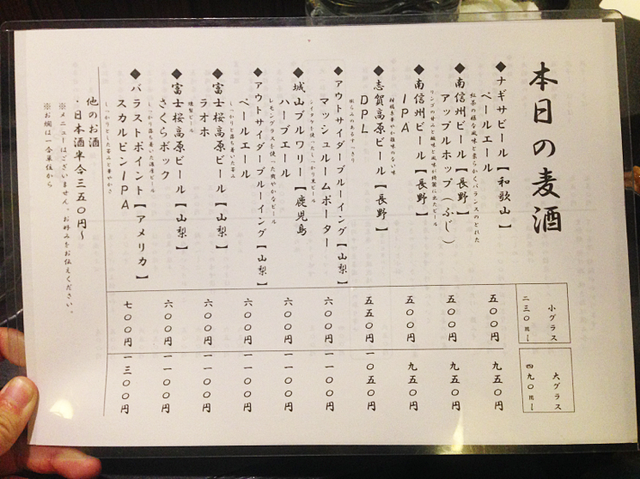 本日の麦酒
小グラス
二三〇円〜
大グラス
四九〇円〜
◆ナギサビール【和歌山】
ペールエール
五〇〇円
九五〇円
◆南信州ビール【長野】
アップルホップ(ふじ)
五〇〇円
九五〇円
◆南信州ビール【長野】
IPA
五〇〇円
九五〇円
◆志賀高原ビール【長野】
DPL
五五〇円
一〇五〇円
◆アウトサイダーブルーイング【山梨】
マッシュルームポーター
六〇〇円
一一〇〇円
◆城山ブルワリー【鹿児島】
ハーブエール
レモングラスを使った爽やかなビール
六〇〇円
一一〇〇円
◆アウトサイダーブルーイング【山梨】
ペールエール
六〇〇円
一一〇〇円
◆富士桜高原ビール【山梨】
ラオホ
燻製ビール
六〇〇円
一一〇〇円
◆富士桜高原ビール【山梨】
さくらボック
六〇〇円
一一〇〇円
◆バラストポイント【アメリカ】
スカルピンIPA
七〇〇円
一三〇〇円
他のお酒
・日本酒半合三五〇円〜
※メニューはございません。お好みをお伝えください。
※お燗は一合単位から